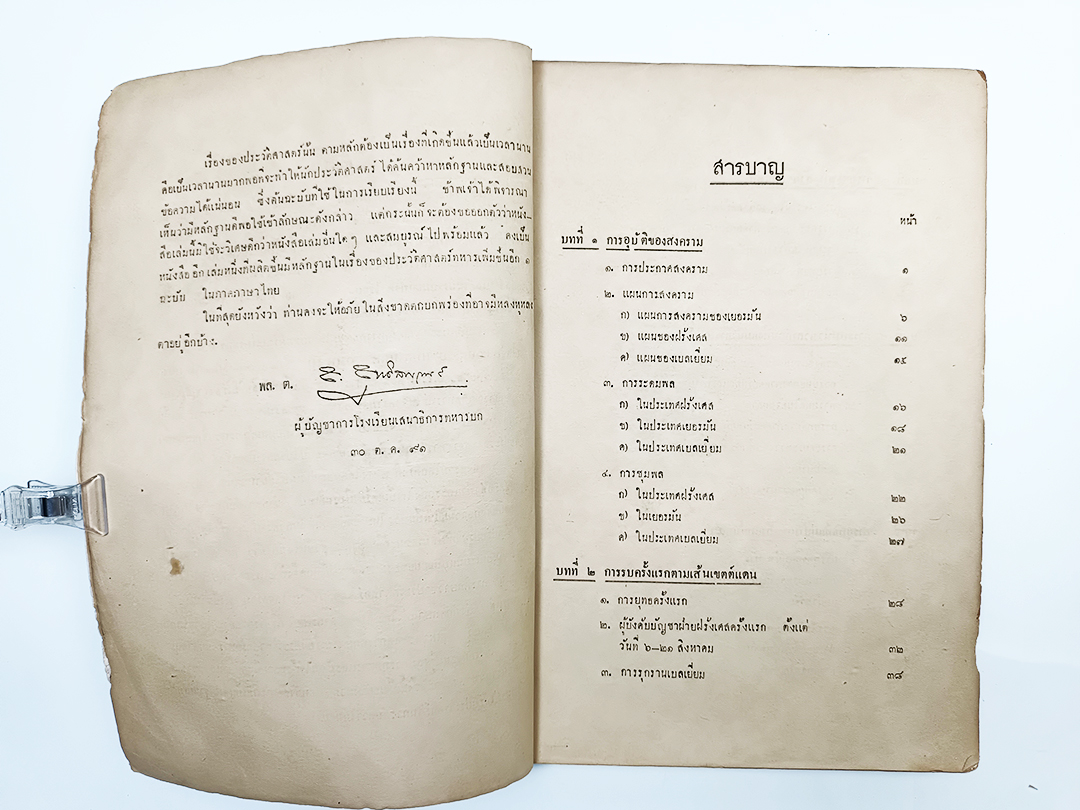 เรื่องของประวัติศาสตร์นั้น ตามหลักต้องเป็นเรื่องที่เกิดขึ้นแล้วเป็นเวลานาน
คือเป็นเวลานานมากพอที่จะทำให้นักประวัติศาสตร์ ได้ค้นคว้าหาหลักฐานและสอบสวน
ข้อความได้แน่นอน ซึ่งต้นฉะบับที่ใช้ในการเรียบเรียงนี้ ข้าพเจ้าได้พิจารณา
เห็นว่ามีหลักฐานดีพอใช้เข้าลักษณะดังกล่าว แต่กระนั้นก็จะต้องขอออกตัวว่าหนัง-
สือเล่มนี้มิใช่จะวิเศษดีกว่าหนังสือเล่มอื่นใด ๆ และสมบูรณ์ไปพร้อมแล้ว คงเป็น
หนังสืออีกเล่มหนึ่งที่ผลิตขึ้นมีหลักฐานในเรื่องของประวัติศาสตร์ทหารเพิ่มขึ้นอีก ๑
ฉะบับ ในภาคภาษาไทย
ในที่สุดยังหวังว่า ท่านคงจะให้อภัยในสิ่งขาดตกบกพร่องที่อาจมีหลงหูหลง
ตาอยู่อีกบ้าง.
พล. ต.
ผู้บัญชาการโรงเรียนเสนาธิการทหารบก
๓๐ ต. ค. ๙๑
สารบาญ
หน้า
บทที่ ๑ การอุบัติของสงคราม
๑. การประกาศสงคราม ๑
๒. แผนการสงคราม
ก) แผนการสงครามของเยอรมัน ๖
ข) แผนของฝรั่งเศส ๑๑
ค) แผนของเบลเยี่ยม ๑๔
๓. การระดมพล
ก) ในประเทศฝรั่งเศส ๑๖
ข) ในประเทศเยอรมัน ๑๘
ค) ในประเทศเบลเยี่ยม ๒๑
๔. การชุมพล
ก) ในประเทศฝรั่งเศส ๒๒
ข) ในเยอรมัน ๒๖
ค) ในประเทศเบลเยี่ยม ๒๗
บทที่ ๒ การรบครั้งแรกตามเส้นเขตต์แดน
๑. การยุทธครั้งแรก ๒๘
๒. ผู้บังคับบัญชาฝ่ายฝรั่งเศสครั้งแรก ตั้งแต่
วันที่ ๖–๒๑ สิงหาคม ๓๒
๓. การรุกรานเบลเยี่ยม ๓๘